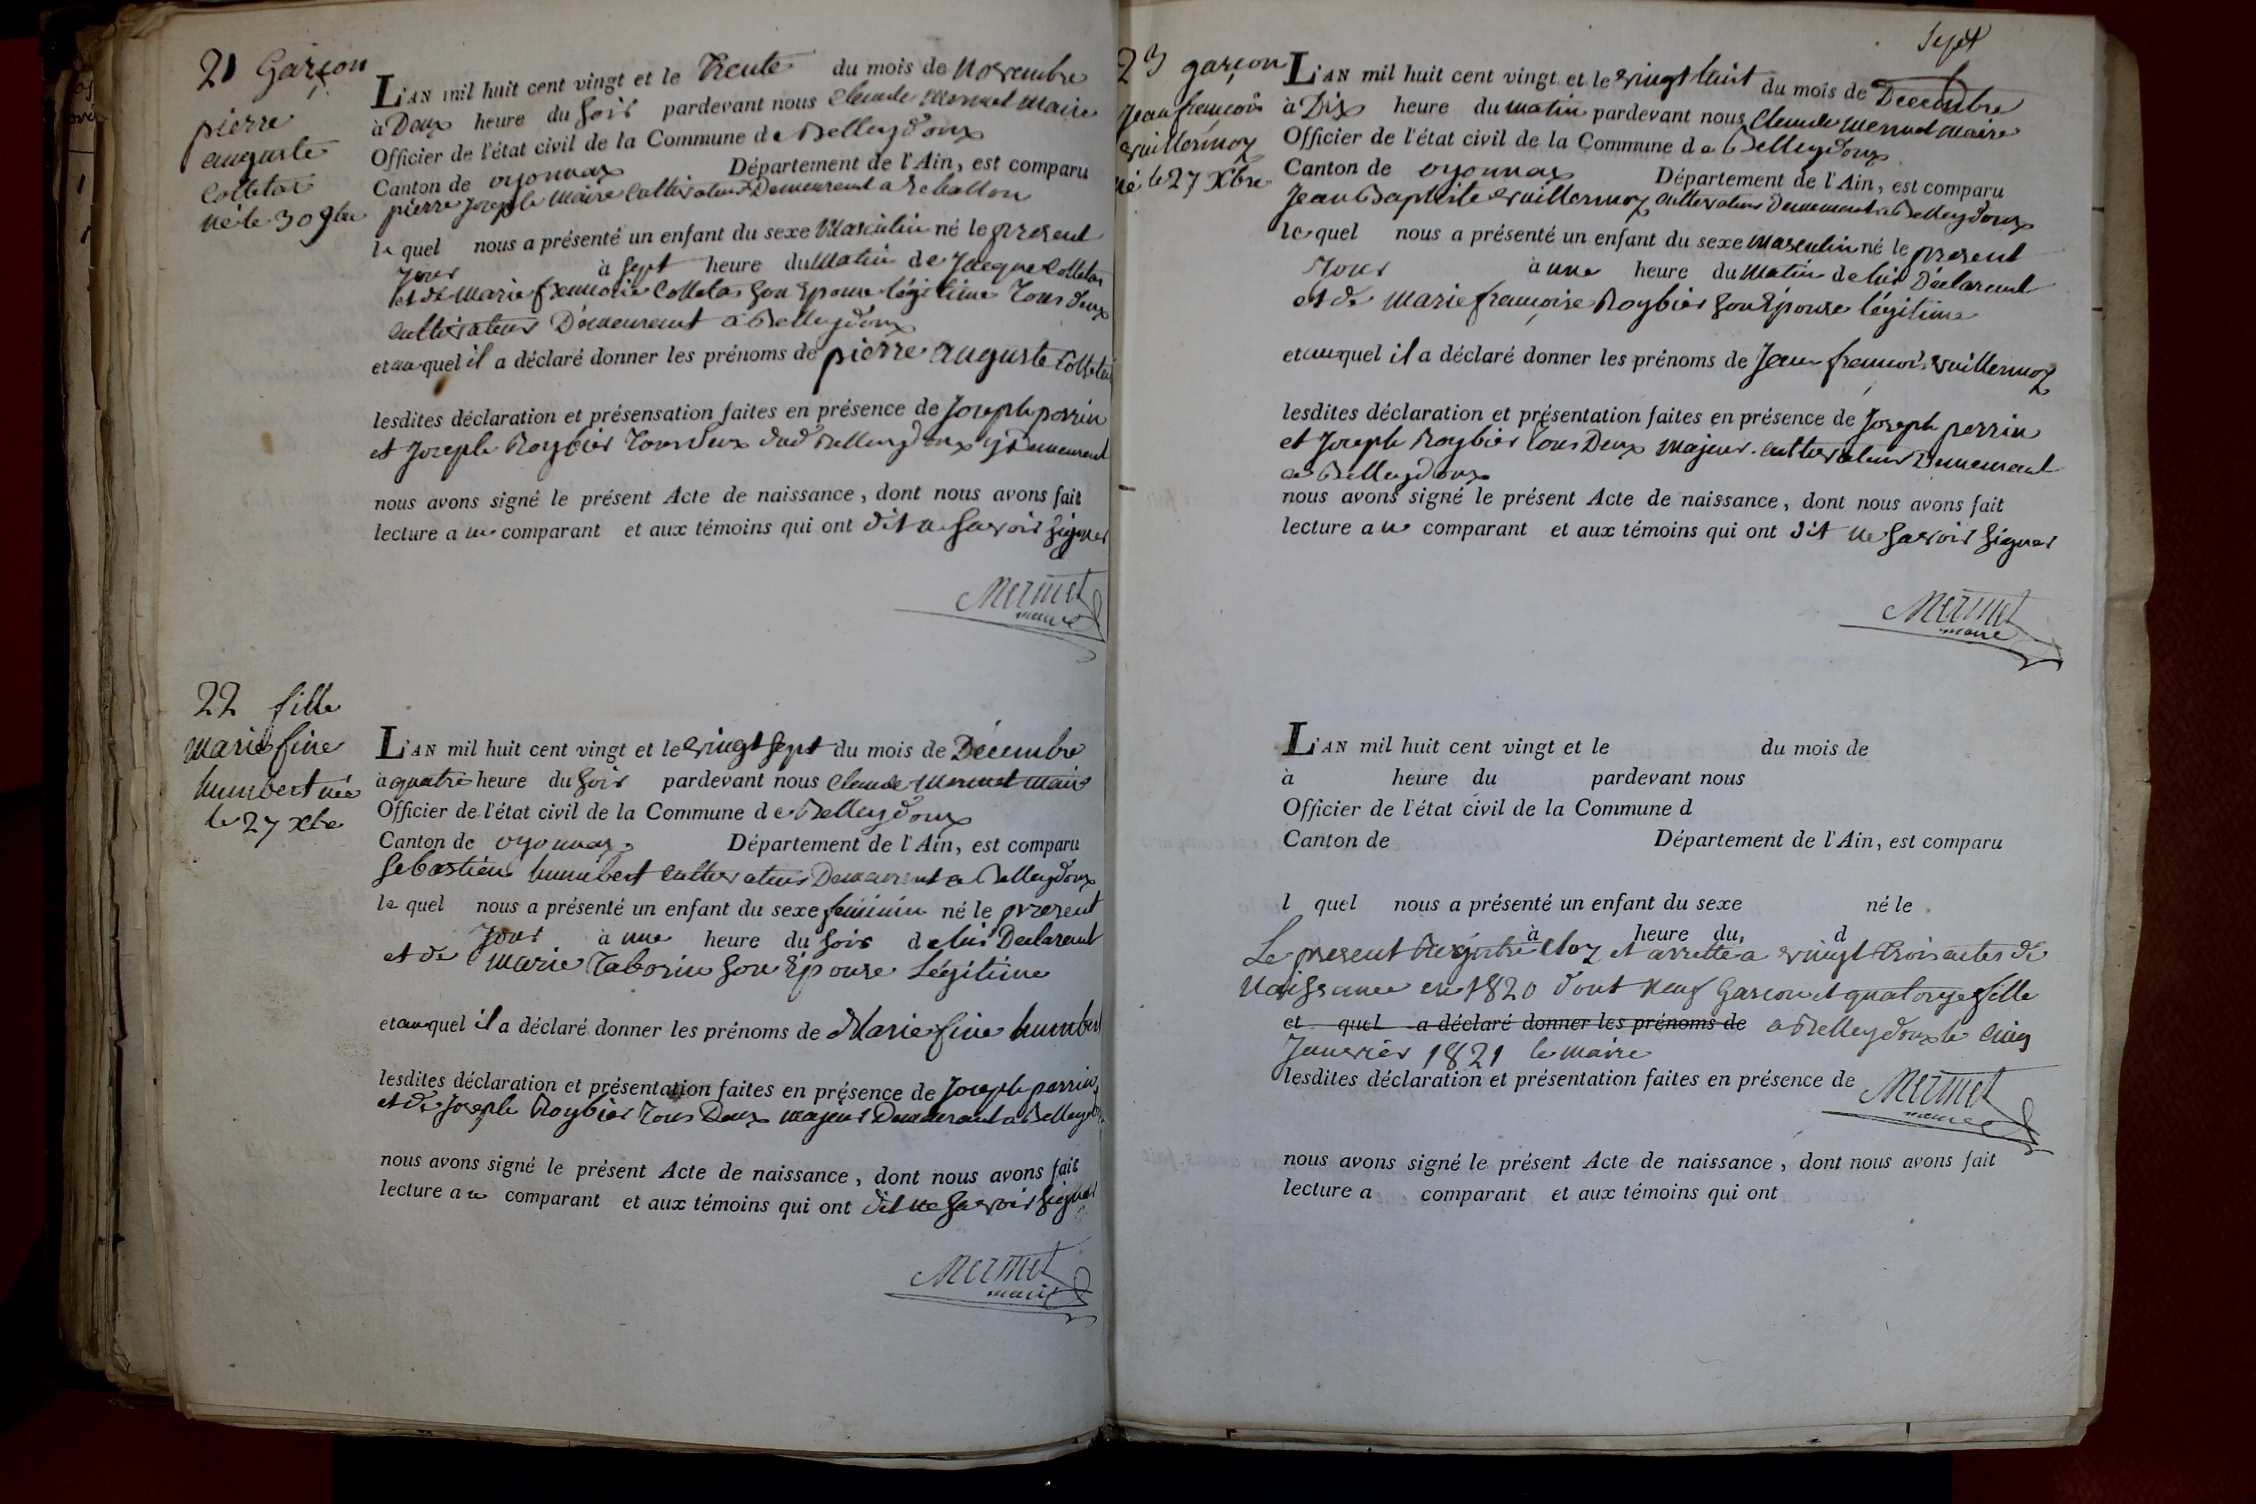 21 Garçon
pierre
auguste
Colletaz
né le 30 9bre
L'AN mil huit cent vingt et le Trente du mois de Novembre
à Deux heure du Soir pardevant nous Claude Mermet Maire
Officier de l'état civil de la Commune de Belleydoux
Canton de oyonnax Département de l'Ain, est comparu
pierre Joseph Maire Cultivateur Demeurent a
le quel nous a présenté un enfant du sexe Masculin né le present
Jour à sept heure du Matin de Jacque Colletaz
et de Marie françoise Colletaz Son Epouse légitime Tous deux
Cultivateur Demeurent a Belleydoux
et au quel il a déclaré donner les prénoms de pierre auguste Colletaz
lesdites déclaration et présensation faites en présence de Joseph perrin
et Joseph Roybier Tous deux dud Belleydoux y Demeurent
nous avons signé le présent Acte de naissance, dont nous avons fait
lecture au comparant et aux témoins qui ont dit ne Savoir Signer
Mermet
maire
22 fille
marie fine
humbert née
le 27 Xbre
L'AN mil huit cent vingt et le vingt Sept du mois de Décembre
à quatre heure du Soir pardevant nous Claude Mermet Maire
Officier de l'état civil de la Commune de Belleydoux
Canton de oyonnax Département de l'Ain, est comparu
Sebastien humbert Cultivateur Demeurent a Belleydoux
le quel nous a présenté un enfant du sexe féminin né le present
Jour à une heure du Soir de lui Declarent
et de Marie Taborin Son Épouse Légitime
et au quel il a déclaré donner les prénoms de Marie fine humbert
lesdites déclaration et présentation faites en présence de Joseph perrin
et de Joseph Roybier Tous Deux majeur Demeurant a Belleydoux
nous avons signé le présent Acte de naissance, dont nous avons fait
lecture au comparant et aux témoins qui ont dit ne Savoir Signer
Mermet
maire
Sept
23 garçon
Jean françois
vuillermoz
né le 27 Xbre
L'AN mil huit cent vingt et le vingt huit du mois de Decembre
à Dix heure du matin pardevant nous Claude Mermet Maire
Officier de l'état civil de la Commune de Belleydoux
Canton de oyonnax Département de l'Ain, est comparu
Jean Baptiste vuillermoz Cultivateur Demeurent a Belleydoux
le quel nous a présenté un enfant du sexe masculin né le present
Jour à une heure du Matin de lui Déclarent
et de Marie françoise Roybier Son Épouse légitime
et au quel il a déclaré donner les prénoms de Jean francois vuillermoz
lesdites déclaration et présentation faites en présence de Joseph perrin
et Joseph Roybier Tous Deux Majeur Cultivateur Demeurent
a Belleydoux
nous avons signé le présent Acte de naissance, dont nous avons fait
lecture au comparant et aux témoins qui ont dit ne Savoir Signer
Mermet
maire
L'AN mil huit cent vingt et le du mois de
à heure du pardevant nous
Officier de l'état civil de la Commune d
Canton de Département de l'Ain, est comparu
l quel nous a présenté un enfant du sexe né le
à heure du, d
Le present Registre Cloz et arretté a vingt Trois actes de
Naissance en 1820 dont neuf Garcon et quatorze fille
et quel a déclaré donner les prénoms de a Belleydoux le Cinq
Janvier 1821 le maire
lesdites déclaration et présentation faites en présence de
Mermet
maire
nous avons signé le présent Acte de naissance, dont nous avons fait
lecture a comparant et aux témoins qui ont